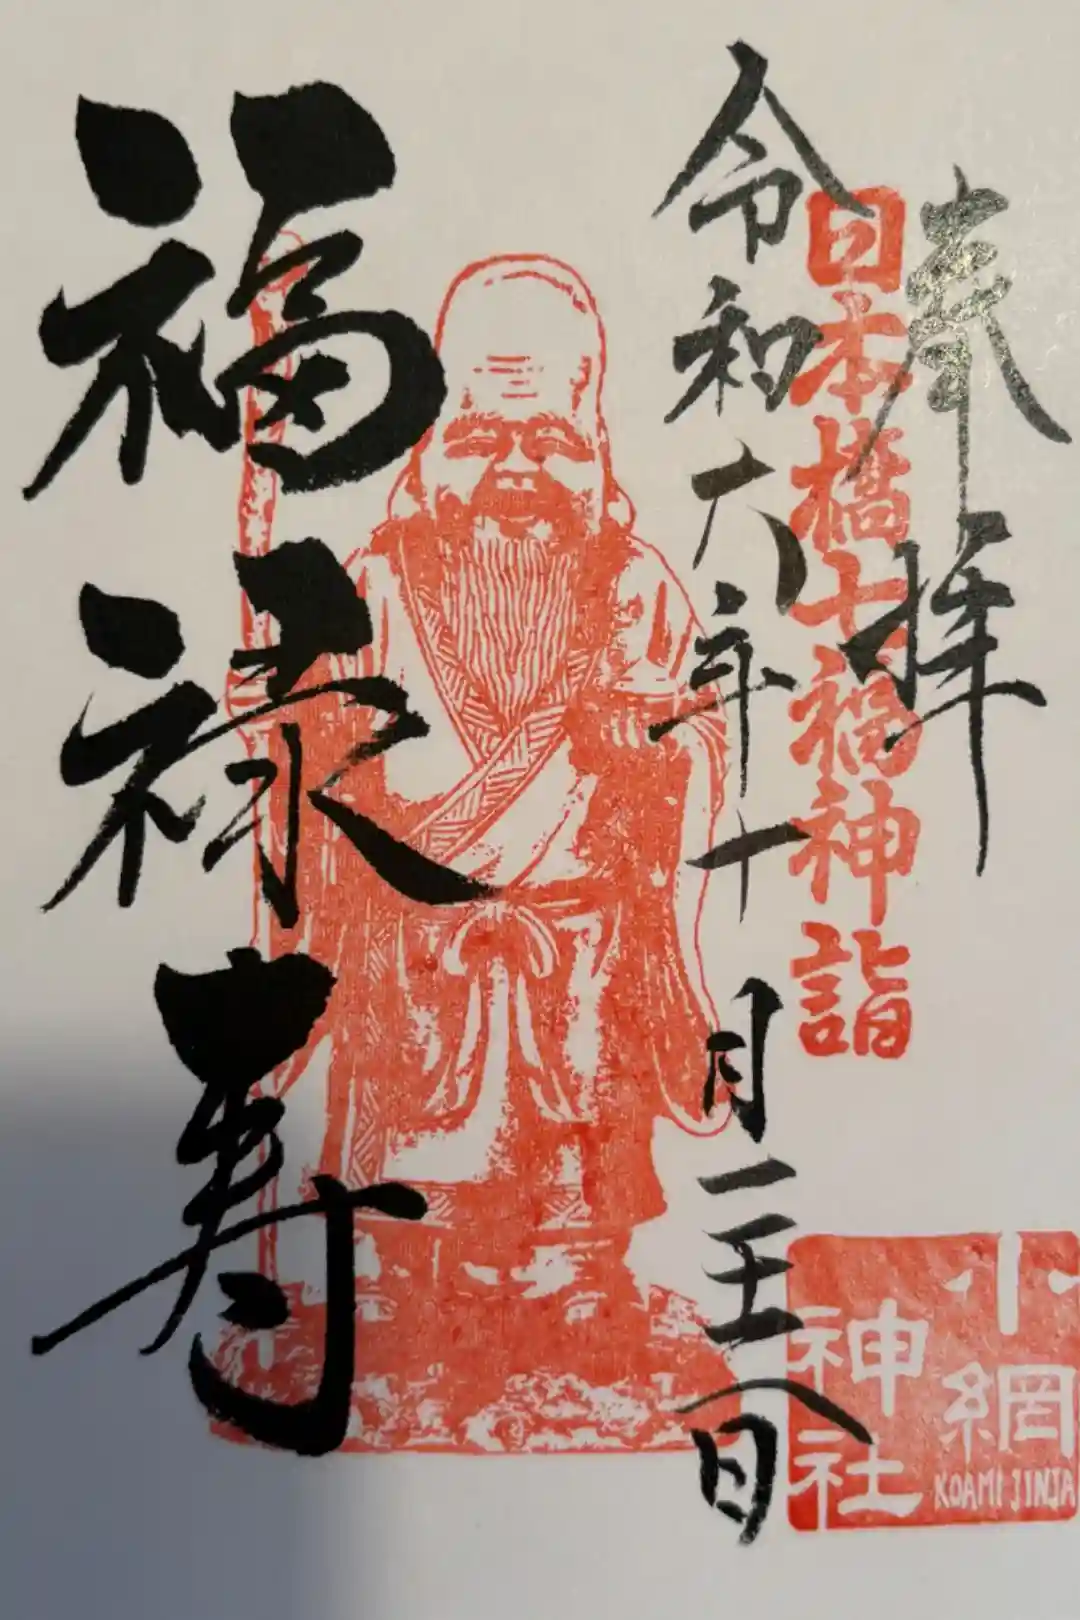 奉拝
日本橋七福神詣
令和六年十月二十六日
福禄寿
小網
神社
KOAMI JINJA